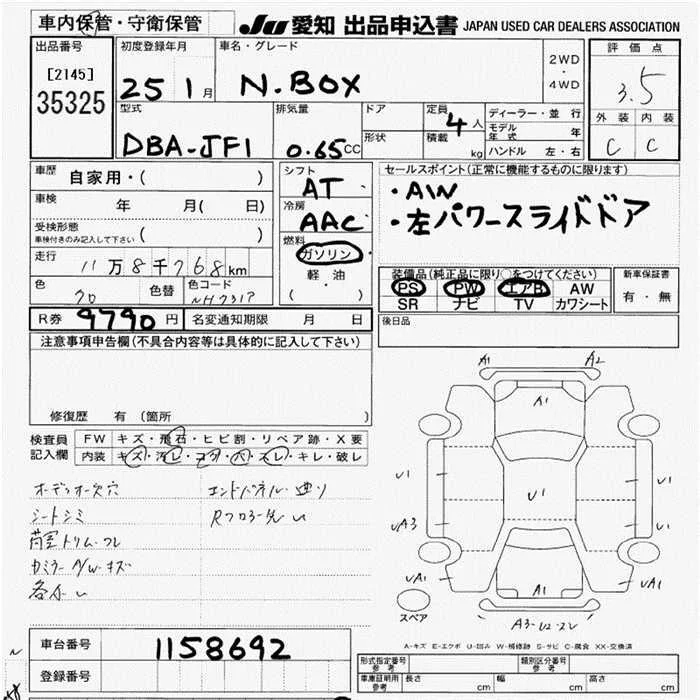 車内保管・守衛保管
JU 愛知 出品申込書 JAPAN USED CAR DEALERS ASSOCIATION
出品番号
[2145]
35325
初度登録年月
25 1 月
車名・グレード
N.BOX
2WD
・
4WD
評価点
3.5
外装 内装
C C
型式
DBA-JF1
排気量
0.65 CC
ドア
形状
定員
4 人
積載
kg
ディーラー・並行
モデル年式 年
ハンドル 左・右
車歴
自家用・( )
車検
年 月( 日)
受検形態
車検付きのみ記入して下さい ( )
走行
11 万 8 千 768 km
色
クロ
色替
色コード
NH731P
シフト
AT
冷房
AAC
燃料
ガソリン
軽油
( )
セールスポイント(正常に機能するものに限ります)
・AW
・左パワースライドドア
装備品(純正品に限り○をつけてください)
PS PW エアB AW
SR ナビ TV カワシート
新車保証書
有・無
R券 9790 円
名変通知期限 月 日
後日品
注意事項申告欄(不具合内容等は具体的に記入して下さい)
修復歴 有 (箇所 )
検査員
記入欄
FW キズ・飛石・ヒビ割・リペア跡・X要
内装 キズ・汚レ・コゲ・穴・スレ・キレ・破レ
オーディオ欠穴
シートシミ
荷室トリム・スレ
エンドパネル・
A1 A2
A1
U1
U1
UA3
UA1
U1
U1
UA1
A1
A3-U2-スレ
スペア
A-キズ E-エクボ U-凹み W-補修跡 S-サビ C-腐食 XX-交換済
車台番号
1158692
登録番号
形式指定番号 参考
類別区分番号 参考
車庫証明用 参考
長さ cm
幅 cm
高さ cm